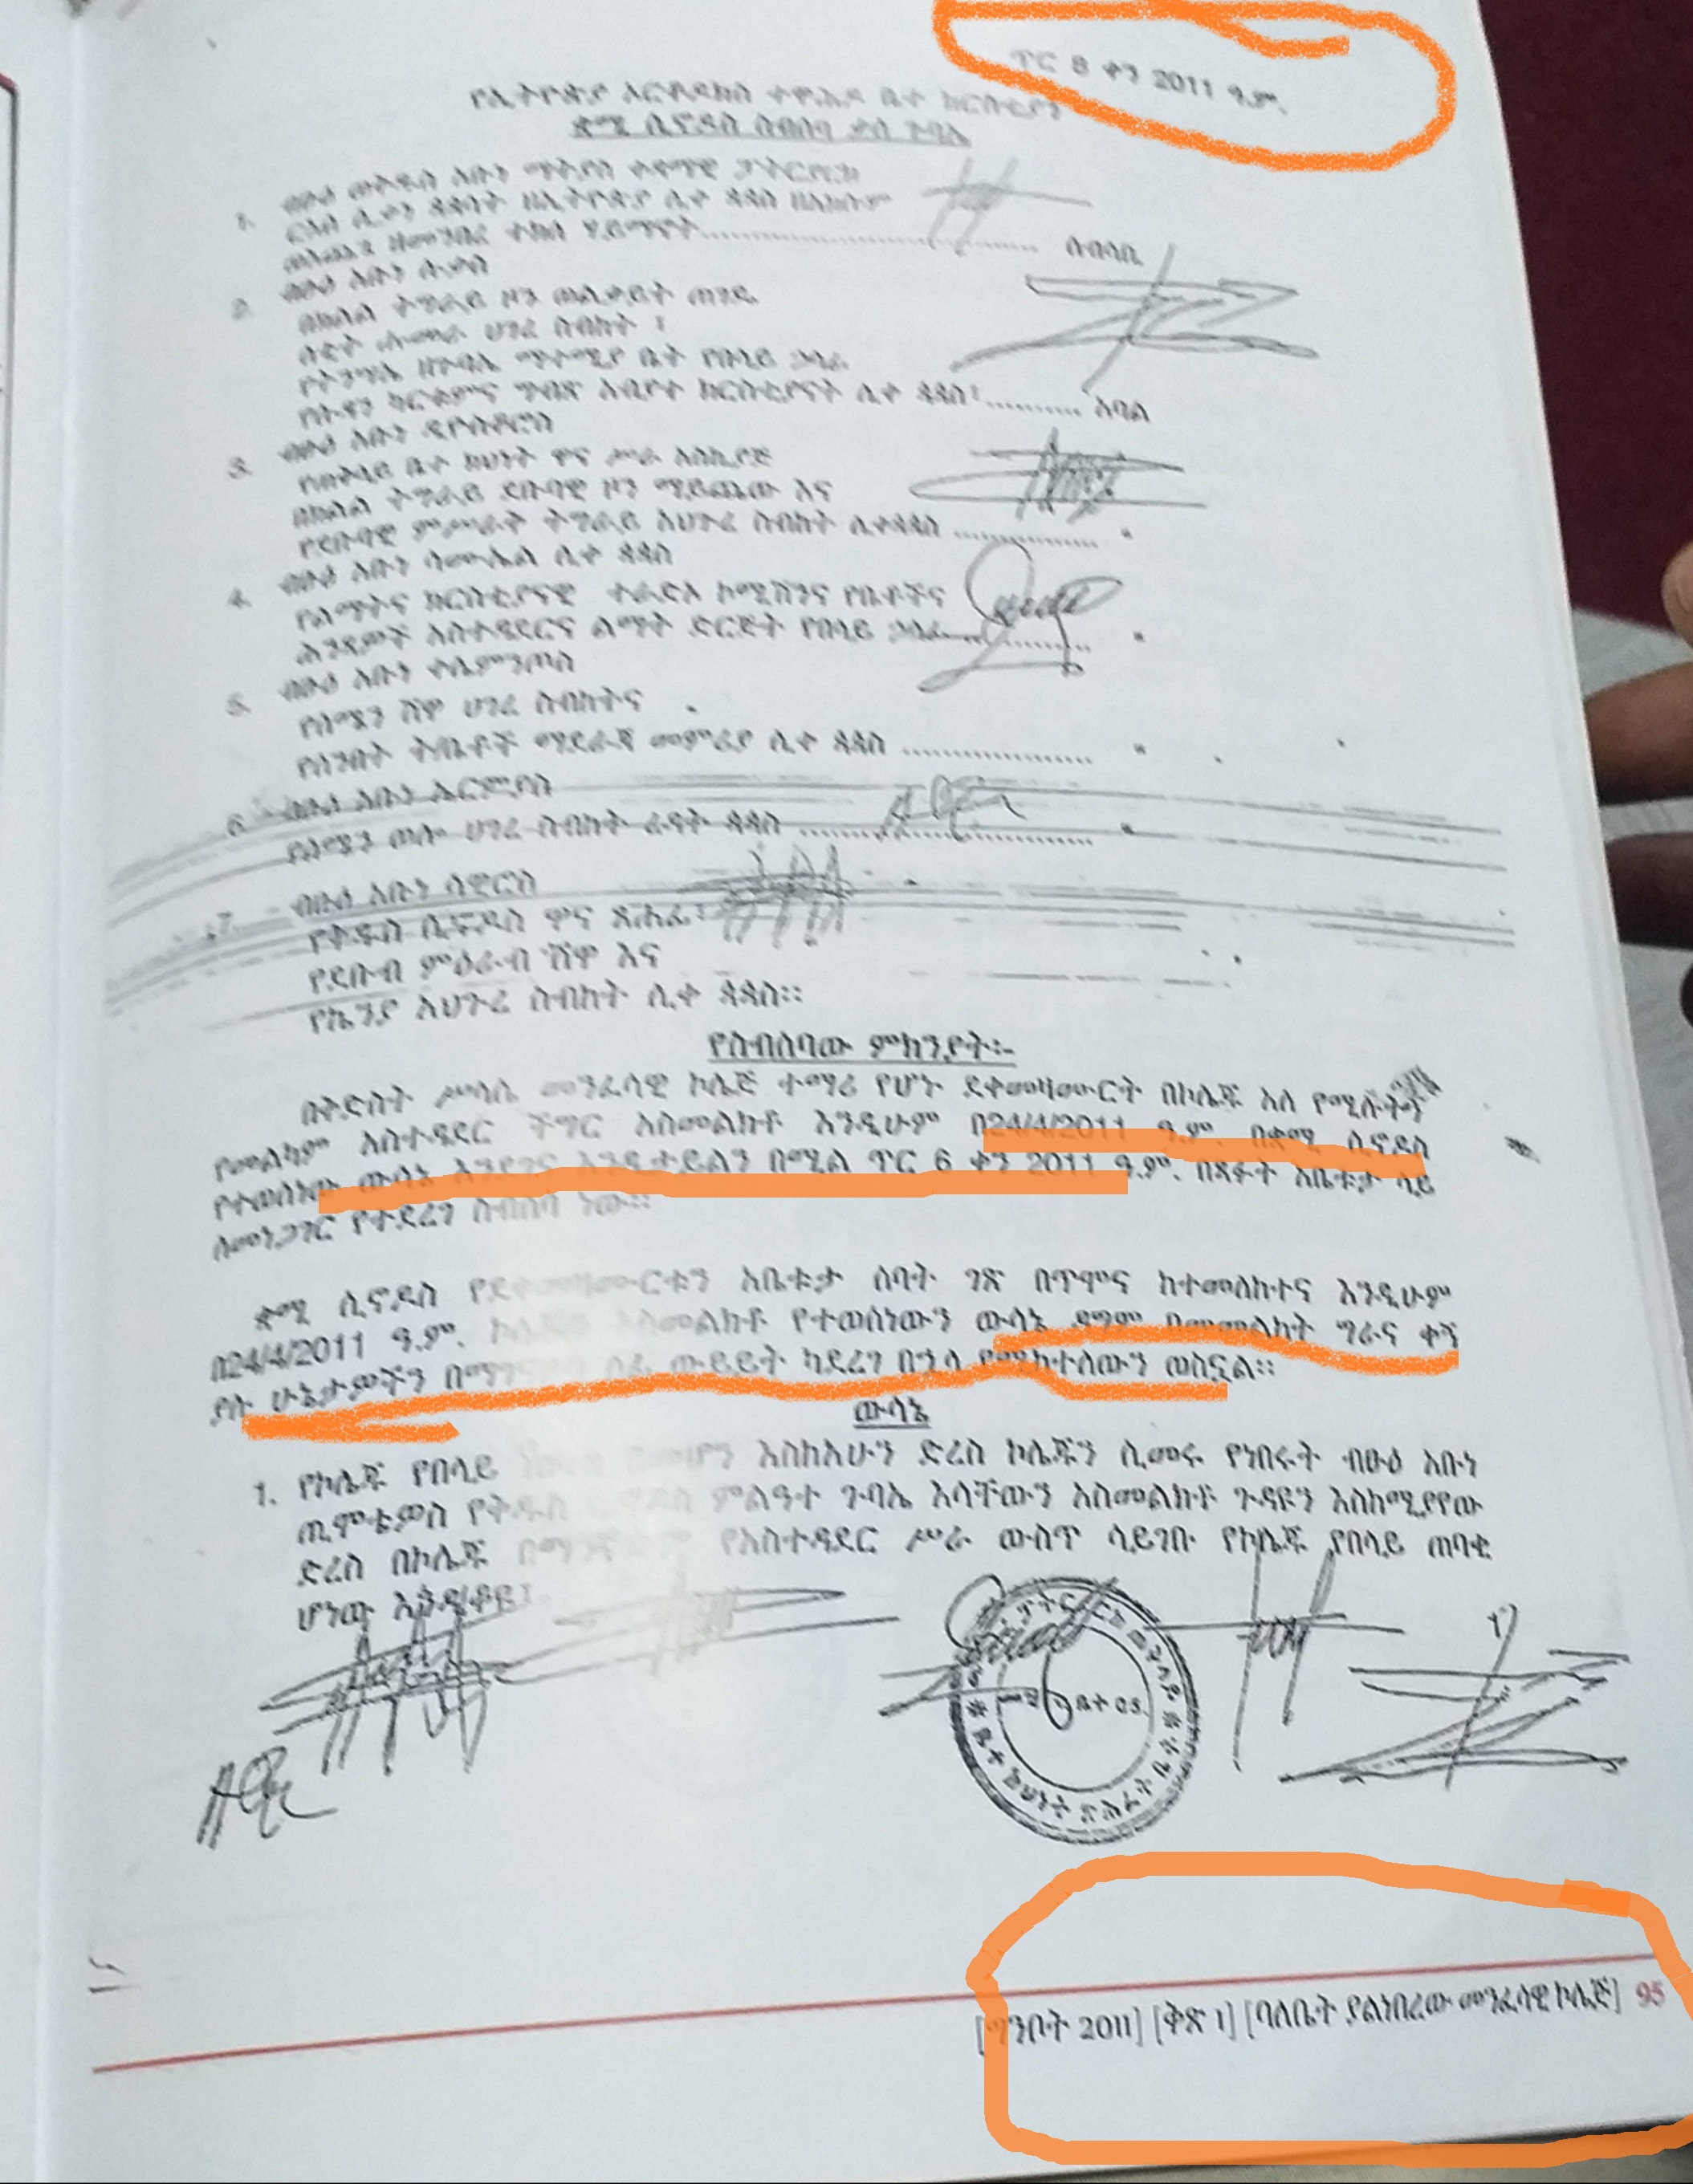 ጥር 8 ቀን 2011 ዓ.ም.
የኢትዮጵያ ኦርቶዶክስ ተዋሕዶ ቤተ ክርስቲያን
ቋሚ ሲኖዶስ ስብሰባ ቃለ ጉባኤ
1. ብፁዕ ወቅዱስ አቡነ ማትያስ ቀዳማዊ ፓትርያርክ
ርእሰ ሊቃነ ጳጳሳት ዘኢትዮጵያ ሊቀ ጳጳስ ዘአክሱም
ወእጨጌ ዘመንበረ ተክለ ሃይማኖት.................................... ሰብሳቢ
2. ብፁዕ አቡነ ሉቃስ
በክልል ትግራይ ዞን ወልቃይት ጠገዴ
ሰቲት ሑመራ ሀገረ ስብከት ፣
የትንሣኤ ዘጉባኤ ማተሚያ ቤት የበላይ ኃላፊ
የሱዳን ካርቱምና ግብጽ አብያተ ክርስቲያናት ሊቀ ጳጳስ፣.......... አባል
3. ብፁዕ አቡነ ዲዮስቆሮስ
የጠቅላይ ቤተ ክህነት ዋና ሥራ አስኪያጅ
በክልል ትግራይ ደቡባዊ ዞን ማይጨው እና
የደቡባዊ ምሥራቅ ትግራይ አህጉረ ስብከት ሊቀጳጳስ ............... "
4. ብፁዕ አቡነ ሳሙኤል ሊቀ ጳጳስ
የልማትና ክርስቲያናዊ ተራድኦ ኮሚሽንና የቤቶችና
ሕንፃዎች አስተዳደርና ልማት ድርጅት የበላይ ኃላፊ............... "
5. ብፁዕ አቡነ ቀሌምንጦስ
የሰሜን ሸዋ ሀገረ ስብከትና
የሰንበት ት/ቤቶች ማደራጃ መምሪያ ሊቀ ጳጳስ .................... "
6. ብፁዕ አቡነ ኤርምያስ
የሰሜን ወሎ ሀገረ ስብከት ረዳት ጳጳስ ............................... "
7. ብፁዕ አቡነ ሳዊሮስ
የቅዱስ ሲኖዶስ ዋና ጸሐፊ፣
የደቡብ ምዕራብ ሸዋ እና
የኬንያ አህጉረ ስብከት ሊቀ ጳጳስ፡፡
የስብሰባው ምክንያት፡-
በቅድስት ሥላሴ መንፈሳዊ ኮሌጅ ተማሪ የሆኑ ደቀመዛሙርት በኮሌጁ አለ የሚሉትን
የመልካም አስተዳደር ችግር አስመልክቶ እንዲሁም በ24/4/2011 ዓ.ም. በቋሚ ሲኖዶስ
የተወሰነው ውሳኔ እንደገና እንዲታይልን በሚል ጥር 6 ቀን 2011 ዓ.ም. በጻፉት አቤቱታ ላይ
ለመነጋገር የተደረገ ስብሰባ ነው፡፡
ቋሚ ሲኖዶስ የደቀመዛሙርቱን አቤቱታ ሰባት ገጽ በጥሞና ከተመለከተና እንዲሁም
በ24/4/2011 ዓ.ም. ኮሌጁን አስመልክቶ የተወሰነውን ውሳኔ ዳግም በመመልከት ግራና ቀኝ
ያሉ ሁኔታዎችን ሰፊ ውይይት ካደረገ በኋላ የሚከተለውን ወስኗል፡፡
ውሳኔ
1. የኮሌጁ የበላይ በመሆን እስከአሁን ድረስ ኮሌጁን ሲመሩ የነበሩት ብፁዕ አቡነ
ጢሞቴዎስ የቅዱስ ሲኖዶስ ምልዓተ ጉባኤ እሳቸውን አስመልክቶ ጉዳዩን እስከሚያየው
ድረስ በኮሌጁ በማንኛውም የአስተዳደር ሥራ ውስጥ ሳይገቡ የኮሌጁ የበላይ ጠባቂ
ሆነው እንዲቆዩ፣
[ግንቦት 2011] [ቅጽ 1] [ባለቤት ያልነበረው መንፈሳዊ ኮሌጅ] 95